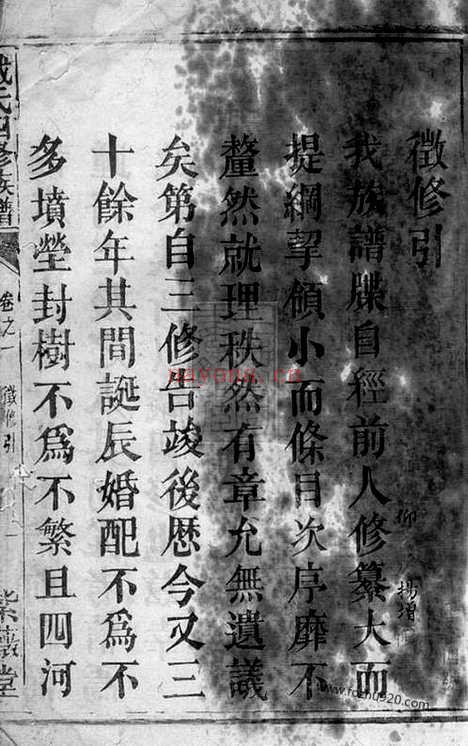 徵修引
我族譜牒自經前人修纂大而
提綱挈領小而條目次序靡不
釐然就理秩然有章允無遺議
矣第自三修告竣後歷今又三
十餘年其間誕辰婚配不爲不
多墳塋封樹不爲不繁且四河
氏四修族譜
卷之一
徵修引
一
堂
nayona.cn
www.fozhu920.com